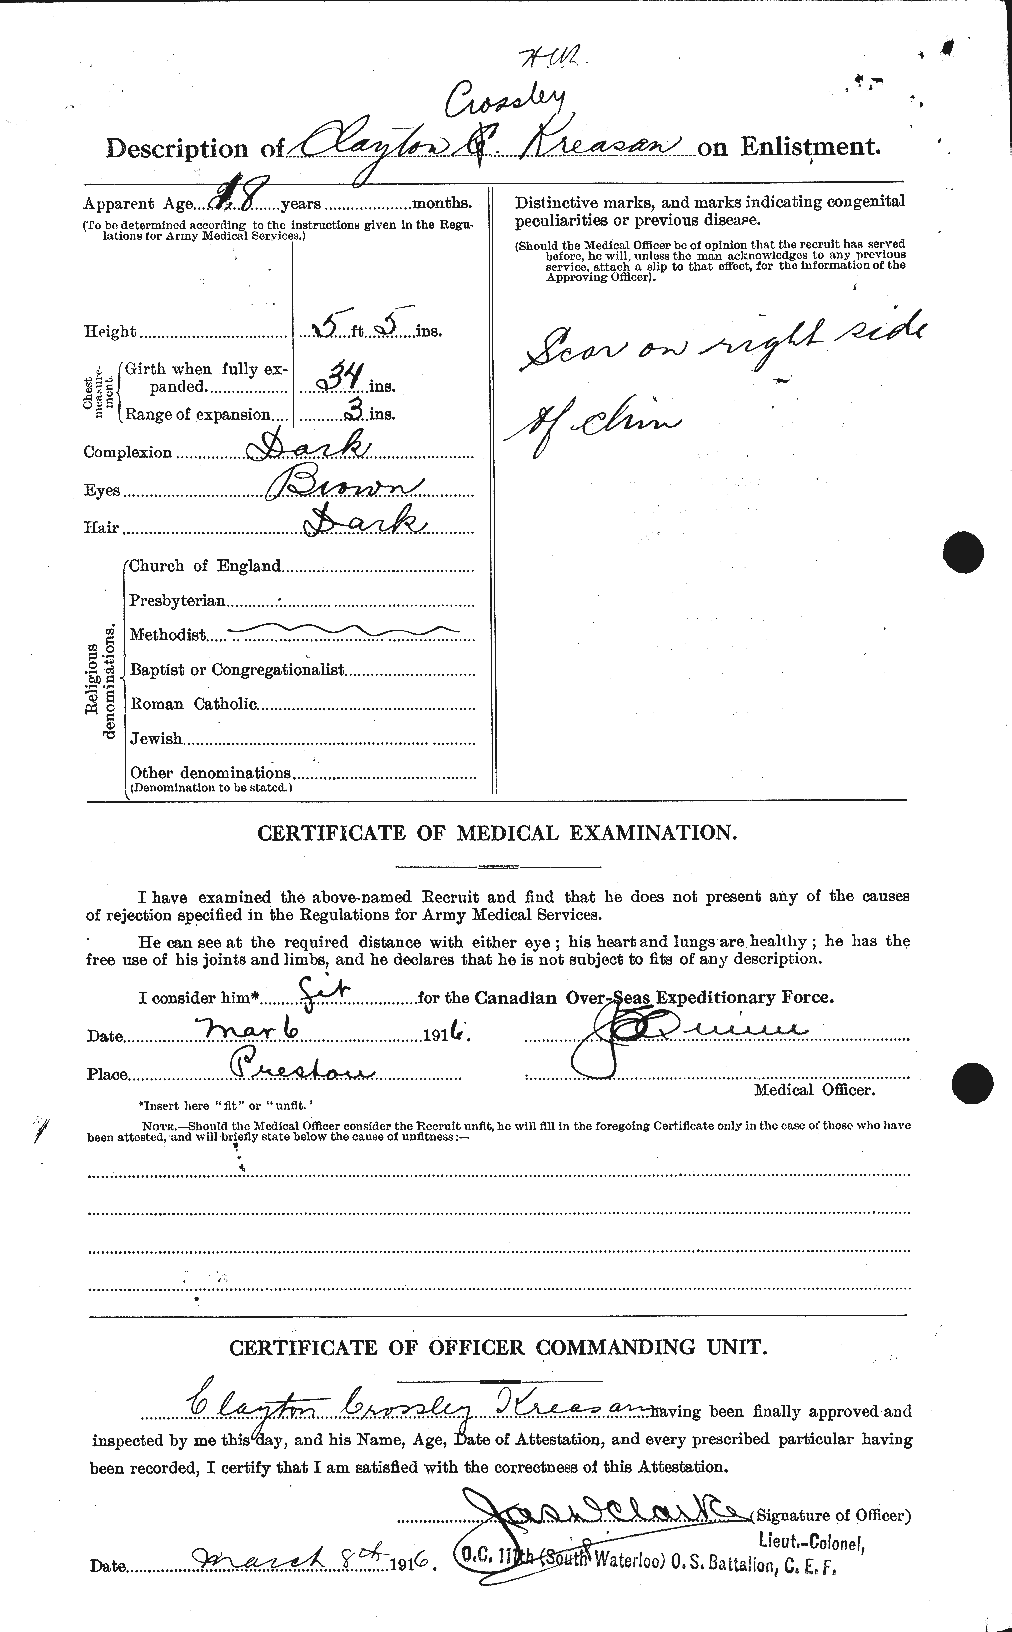 H.W.
Crossley
Description of Clayton C. Kreasan on Enlistment.
Apparent Age 18 years months.
(To be determined according to the instructions given in the Regu-
lations for Army Medical Services.)
Height 5 ft 5 ins.
Chest
measure-
ment.
Girth when fully ex-
panded 34 ins.
Range of expansion 3 ins.
Complexion Dark
Eyes Brown
Hair Dark
Religious
denominations.
Church of England
Presbyterian
Methodist
Baptist or Congregationalist
Roman Catholic
Jewish
Other denominations
(Denomination to be stated.)
Distinctive marks, and marks indicating congenital
peculiarities or previous disease.
(Should the Medical Officer be of opinion that the recruit has served
before, he will, unless the man acknowledges to any previous
service, attach a slip to that effect, for the information of the
Approving Officer).
Scar on right side
of chin
CERTIFICATE OF MEDICAL EXAMINATION.
I have examined the above-named Recruit and find that he does not present any of the causes
of rejection specified in the Regulations for Army Medical Services.
He can see at the required distance with either eye; his heart and lungs are healthy; he has the
free use of his joints and limbs, and he declares that he is not subject to fits of any description.
I consider him* fit for the Canadian Over-Seas Expeditionary Force.
Date Mar 6 1916.
Place Preston
Medical Officer.
*Insert here "fit" or "unfit.'
NOTE.—Should the Medical Officer consider the Recruit unfit, he will fill in the foregoing Certificate only in the case of those who have
been attested, and will briefly state below the cause of unfitness:—
CERTIFICATE OF OFFICER COMMANDING UNIT.
Clayton Crossley Kreasan having been finally approved and
inspected by me this day, and his Name, Age, Date of Attestation, and every prescribed particular having
been recorded, I certify that I am satisfied with the correctness of this Attestation.
Jas W Clarke (Signature of Officer)
Lieut.-Colonel,
Date March 8th 1916. O.C. 111th (South Waterloo) O. S. Battalion, C. E. F.